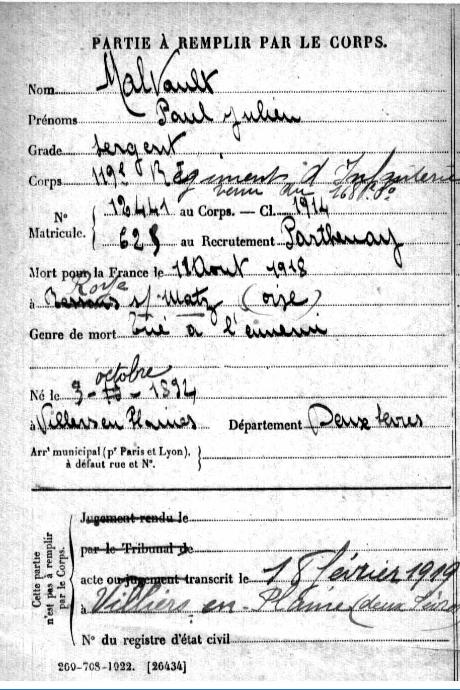 PARTIE À REMPLIR PAR LE CORPS.
Nom Malvault
Prénoms Paul Julien
Grade Sergent
Corps 119e Régiment d'Infanterie
venu du 168e
N° Matricule. 12441 au Corps. — Cl. 1914
625 au Recrutement Parthenay
Mort pour la France le 11 Aout 1918
Roye
à s/ Matz (oise)
Genre de mort tué à l'ennemi
octobre
Né le 3 - 10 - 1894
à Villiers en Plaines Département Deux Sevres
Arrt municipal (pr Paris et Lyon), à défaut rue et N°.
Cette partie n'est pas à remplir par le Corps.
Jugement rendu le
par le Tribunal de
acte ou jugement transcrit le 18 février 1919
à Villiers en-Plaine (deux Sèvres)
N° du registre d'état civil
260-708-1922. [26434]